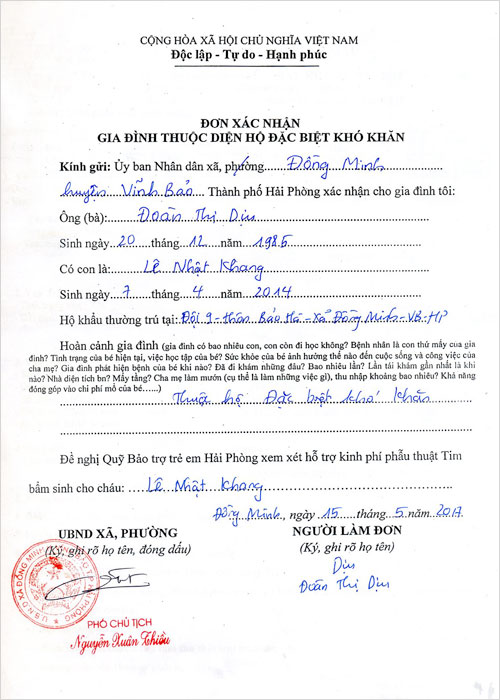 CỘNG HÒA XÃ HỘI CHỦ NGHĨA VIỆT NAM
Độc lập - Tự do - Hạnh phúc
ĐƠN XÁC NHẬN
GIA ĐÌNH THUỘC DIỆN HỘ ĐẶC BIỆT KHÓ KHĂN
Kính gửi: Ủy ban Nhân dân xã, phường Đồng Minh
huyện Vĩnh Bảo Thành phố Hải Phòng xác nhận cho gia đình tôi:
Ông (bà): Đoàn Thị Dịu
Sinh ngày 20 tháng 12 năm 1986
Có con là: Lê Nhật Khang
Sinh ngày 7 tháng 4 năm 2014
Hộ khẩu thường trú tại: Đội 9 - thôn Bảo Hà - Xã Đồng Minh - VB - HP
Hoàn cảnh gia đình (gia đình có bao nhiêu con, con còn đi học không? Bệnh nhân là con thứ mấy cua gia
đình? Tình trạng của bé hiện tại, việc học tập của bé? Sức khỏe của bé ảnh hưởng thế nào đến cuộc sống và công việc của
cha mẹ? Gia đình phát hiện bệnh của bé khi nào? Đã đi khám những đâu? Bao nhiêu lần? Lần tái khám gần nhất là khi
nào? Nhà diện tích bn? Mấy tầng? Cha mẹ làm mướn (cụ thể là làm những việc gì), thu nhập khoảng bao nhiêu? Khả năng
đóng góp vào chi phí mổ của bé......)
Thuộc hộ Đặc biệt khó khăn
Đề nghị Quỹ Bảo trợ trẻ em Hải Phòng xem xét hỗ trợ kinh phí phẫu thuật Tim
bẩm sinh cho cháu: Lê Nhật Khang
Đồng Minh, ngày 15 tháng 5 năm 2017
UBND XÃ, PHƯỜNG
(Ký, ghi rõ họ tên, đóng dấu)
PHÓ CHỦ TỊCH
Nguyễn Xuân Thiều
NGƯỜI LÀM ĐƠN
(Ký, ghi rõ họ tên)
Dịu
Đoàn Thị Dịu